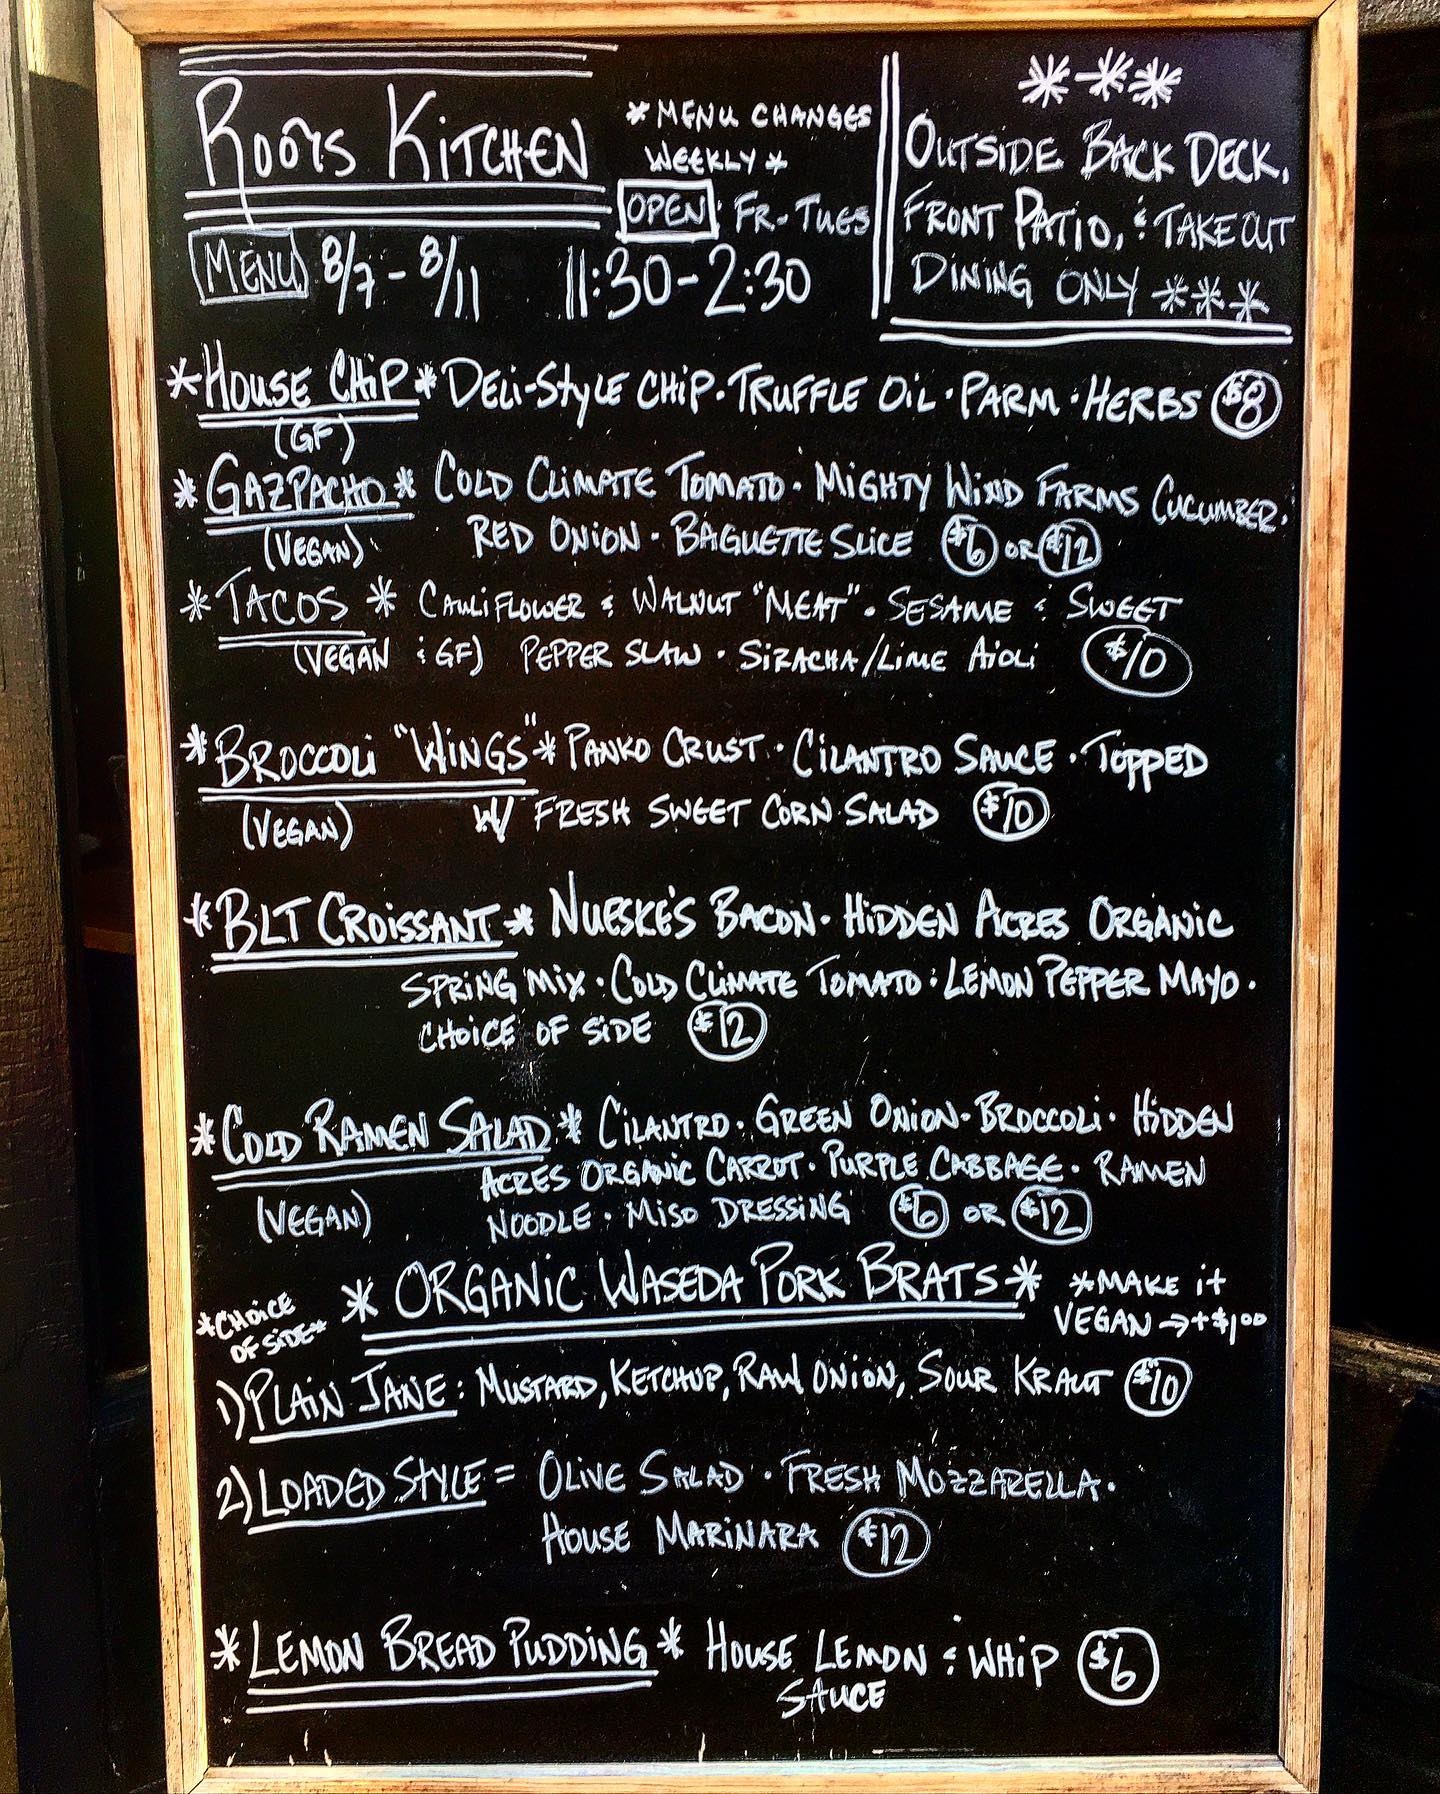 Roots Kitchen
* Menu changes
weekly *
OPEN: Fr - Tues
Menu 8/7 - 8/11 11:30-2:30
***
Outside Back Deck,
Front Patio, & Takeout
Dining only ***
*House Chip* Deli-Style Chip · Truffle Oil · Parm · Herbs $8
(GF)
*Gazpacho* Cold Climate Tomato · Mighty Wind Farms Cucumber ·
(Vegan) Red Onion · Baguette Slice $6 or $12
*Tacos* Cauliflower & Walnut "Meat" · Sesame & Sweet
(Vegan & GF) Pepper Slaw · Siracha/Lime Aioli $10
*Broccoli "Wings"* Panko Crust · Cilantro Sauce · Topped
(Vegan) w/ Fresh Sweet Corn Salad $10
*BLT Croissant* Nueske's Bacon · Hidden Acres Organic
Spring Mix · Cold Climate Tomato · Lemon Pepper Mayo ·
Choice of Side $12
*Cold Ramen Salad* Cilantro · Green Onion · Broccoli · Hidden
Acres Organic Carrot · Purple Cabbage · Ramen
(Vegan) Noodle · Miso Dressing $6 or $12
*Choice
of side*
*Organic Waseda Pork Brats*
*Make it
Vegan → + $1.00
1) Plain Jane: Mustard, Ketchup, Raw Onion, Sour Kraut $10
2) Loaded Style = Olive Salad · Fresh Mozzarella ·
House Marinara $12
*Lemon Bread Pudding* House Lemon & Whip $6
Sauce